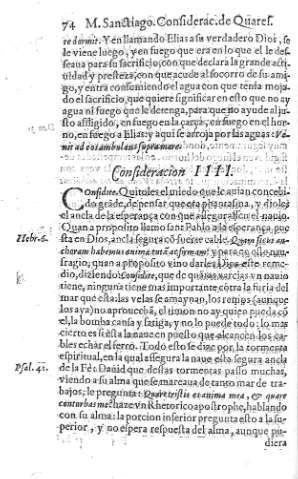 74 M. Sanctiago. Considerac. de Quares.
re dormit. Y en llamando Elias a su verdadero Dios, se
le viene luego, y en fuego que era en lo que el le des-
seaua para su sacrificio, con que declara la grande acti-
uidad y presteza, con que acude al socorro de su ami-
go, y entra consumiendo el agua con que tenia moja-
do el sacrificio, que quiere significar en esto que no ay
agua ni fuego que le detenga, para que no ayude al ju-
sto affligido, en fuego en la çarça, en fuego en el hor-
no, en fuego a Elias: y aqui se arroja por las aguas: Ve-
nit ad eos ambulans supra mare.
Consideracion IIII.
Confidite. Quitoles el miedo que le auia concebi-
do grãde, de pensar que era phantasma, y dioles
el ancla de la esperança con que asseguraßen el nauio.
Quan a proposito llamo sant Pablo a la esperança, pue
Hebr. 6. sta en Dios, ancla segura cõ fuerte cable.
fragio, quan a proposito vino darles Dios este reme-
dio, diziendo: Confidite, que de quãtas xarcias vn nauio
tiene, ninguna tiene mas importante cõtra la furia del
mar que esta: las velas se amaynan, los remos (aunque
los aya) no aprouechã, el timon no ay quien pueda cõ
el, la bomba cansa y fatiga, y no lo puede todo: lo mas
cierto es si esta la naue en puesto que alcancen los ca-
bles echar el ferro. Todo esto se dize por la tormenta
espiritual, en la qual assegura la naue esta segura ancla
Psal. 41. de la Fè: Dauid que destas tormentas passo muchas,
viendo a su alma que se mareaua de tanto mar de tra-
bajos; le pregunta: Quare tristis es anima mea, & quare
conturbas me: haze vn Rhetorico apostrophe, hablando
con su alma: la porcion inferior pregunta esto a la su-
perior, y no espera respuesta del alma, aunque pu-
diera